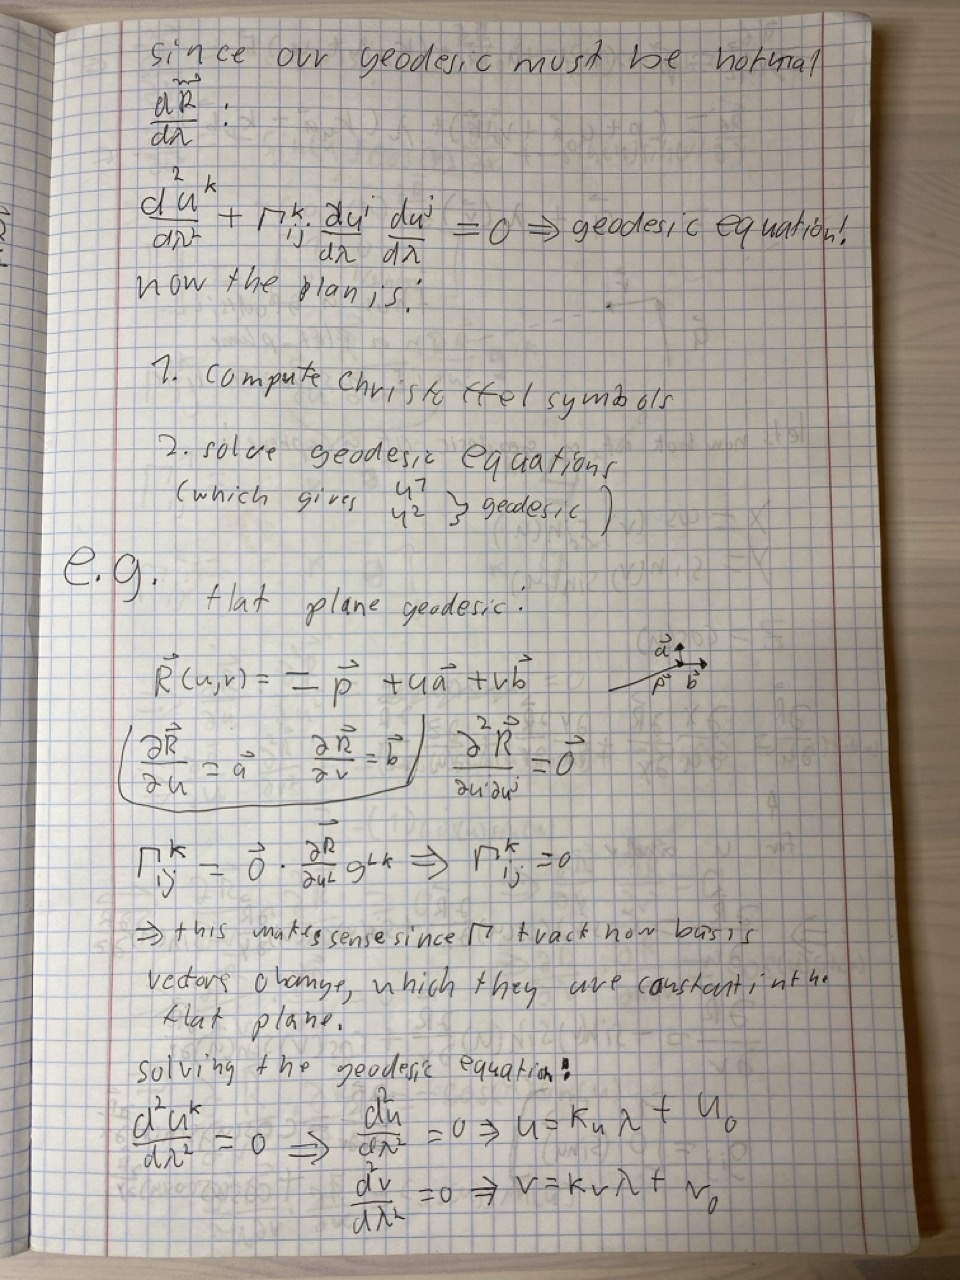 since our geodesic must be normal
dR⃗/dλ :
d²u^k/dλ² + Γ^k_ij du^i/dλ du^j/dλ = 0 ⇒ geodesic equation!
now the plan is:
1. compute Christoffel symbols
2. solve geodesic equations
(which gives u¹ u² } geodesic)
e.g.
flat plane geodesic:
R⃗(u,v) = = p⃗ + ua⃗ + vb⃗
a⃗ p⃗ b⃗
(∂R⃗/∂u = a⃗ ∂R⃗/∂v = b⃗) ∂²R⃗/∂u^i∂u^j = 0⃗
Γ^k_ij = 0⃗ · ∂R⃗/∂u^L g^Lk ⇒ Γ^k_ij = 0
⇒ this makes sense since Γ track how basis
vectors change, which they are constant in the
flat plane.
solving the geodesic equation:
d²u^k/dλ² = 0 ⇒ d²u/dλ² = 0 ⇒ u = k_u λ + u_0
d²v/dλ² = 0 ⇒ v = k_v λ + v_0